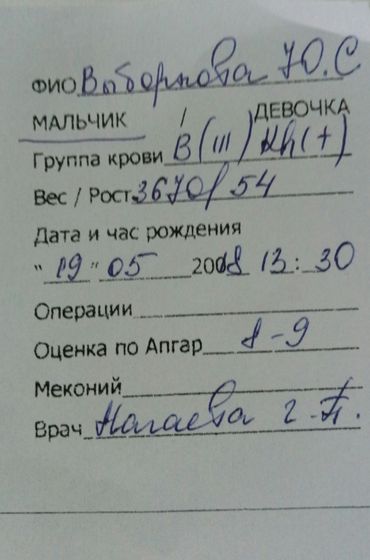 ФИО Выборнова Ю.С
МАЛЬЧИК / ДЕВОЧКА
Группа крови B(III) Rh(+)
Вес / Рост 3670/54
Дата и час рождения
"19" 05 2008 13:30
Операции
Оценка по Апгар 8-9
Меконий
Врач Нагаева Г.П.